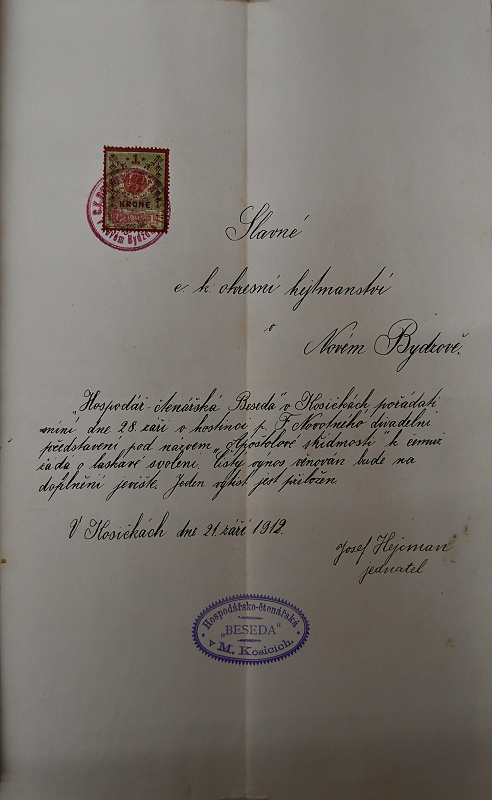 1
KRONE
Slavné
c. k. okresní hejtmanství
v
Novém Bydžově.
"Hospodář. čtenářská Beseda" v Kosičkách pořádati
míní dne 28. září v hostinci p. F. Novotného divadelní
představení pod názvem "Apoštolové skidmosti" k čemuž
žádá o laskavé svolení. Čistý výnos věnován bude na
doplnění jeviště. Jeden výtisk jest přiložen.
V Kosičkách dne 21. září 1912.
Josef Hejcman
jednatel
Hospodářsko-čtenářská
"BESEDA"
v M. Kosicích.